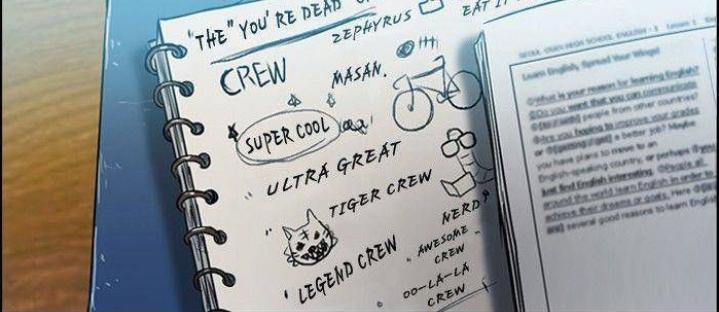 "THE" YOU'RE DEAD
CREW
ZEPHYRUS
EAT IT
MASAN.
SUPER COOL
ULTRA GREAT
TIGER CREW
NERD?
LEGEND CREW
AWESOME
CREW
OO-LA-LA
CREW
HIGH SCHOOL ENGLISH
Learn English, Spread Your Wings!
What is your reason for learning English?
Do you want that you can communicate
people from other countries?
Are you hoping to improve your grades
or a better job? Maybe
you have plans to move to an
English-speaking country, or perhaps
just find English interesting. People all
around the world learn English in order to
achieve their dreams or goals. Here
several good reasons to learn English